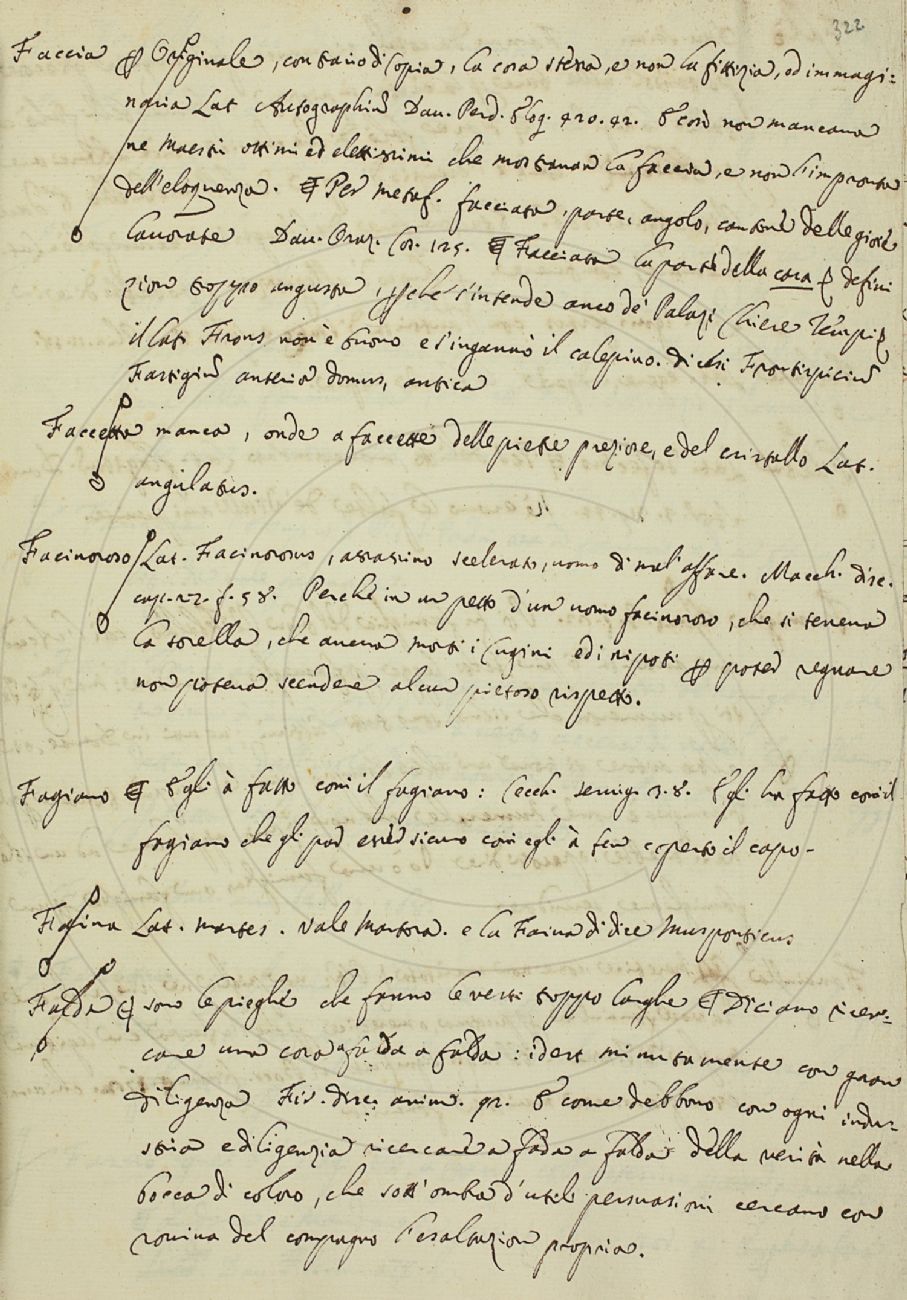 322
Faccia ꝑ Originale, contrario di Copia, la cosa stessa, e non la fittizia, ed immagi=
naria Lat Autographũ Dau. Perd. Eloq. 420. 42. E così non mancano
ne Maestri ottimi ed elettissimi che mostranon la faccia, e non l'impronta
dell'eloquenza. ¶ Per metaf. facciata, parte, angolo, delle gioie
lauorate Dau. Oraz. Cos. 125. ¶ Facciata la parte della casa defini
zion troppo angusta, ꝑche s'intende anco de' Palazi Chiese Tempi
il Lat Frons non è buono e s'ingannò il calepino. dicesi Frontispiciũ
Fastigiũ anterior domus, antica
Faccetta manca, onde a faccette delle pietre preziose, e del cristallo Lat.
angulatus.
Facinoroso Lat. Facinorosus, assassino scelerato, uomo di mal'affare. Macch. disc.
cap. 27. f. 58. Perché in un petto d'un uomo facinoroso, che si teneua
la sorella, che aueua morti i Cugini ed i nipoti ꝑ poter regnare
non poteua scendere alcun pietoso rispetto.
Fagiano ¶ Egli à fatto com'il fagiano: Cecch. seruig. 3. 8. Egli ha fatto com'il
fagiano che gli par esser sicuro com'egli à coperto il capo.
Faina Lat. martes. vale Martora. e la Faina di dice Mus ponticus
Falda ¶ sono le pieghe che fanno le vesti troppo larghe ¶ Diciamo ricer=
care una cosa a falda a falda: idest minutamente con gran
diligenza Fir. disc. anim. 92. E come debbono con ogni indus=
tria e diligenzia ricercare a falda a falda della verità nella
bocca di coloro, che sott'ombra d'utili persuasioni cercano con
rouina del compagno l'esaltazion propria.